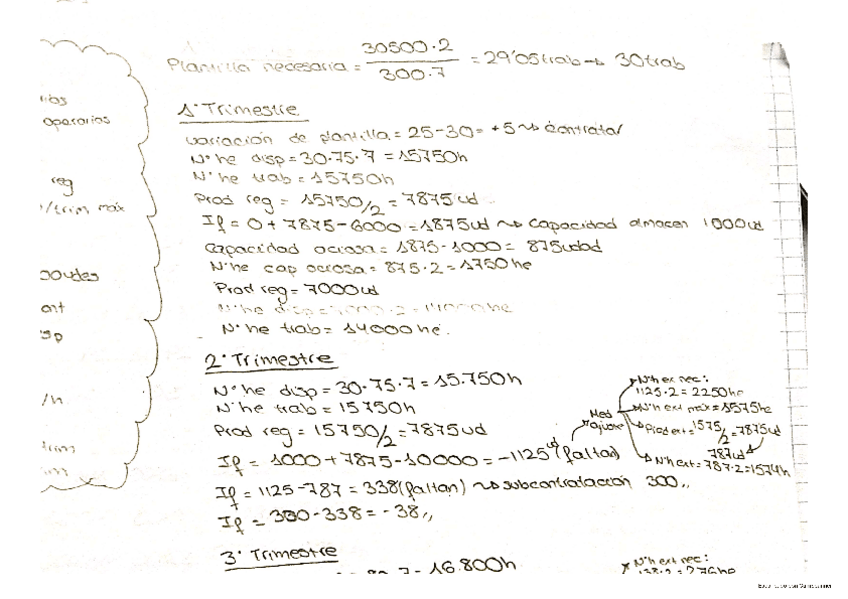 Plantilla necesaria = 30500·2 / 300·7 = 29'05 trab → 30 trab
rios
operarios
reg
/trim máx
ant
/h
1º Trimestre
variación de plantilla = 25-30 = +5 → contratar
Nº he disp = 30·75·7 = 15750h
Nº he trab = 15750h
Prod reg = 15750/2 = 7875 ud
If = 0 + 7875 - 6000 = 1875 ud → Capacidad almacen 1000 ud
Capacidad ociosa = 1875 - 1000 = 875 udad
Nº he cap ociosa = 875·2 = 1750 he
Prod reg = 7000 ud
Nº he trab = 14000 he.
2º Trimestre
Nº he disp = 30·75·7 = 15.750h
Nº he trab = 15750h
Prod reg = 15750/2 = 7875 ud
If = 1000 + 7875 - 10000 = -1125 ud (faltan)
Med ajuste
Nº h ex nec: 1125·2 = 2250 he
Nº h ext max = 1575 he
Prod ext = 1575/2 = 787'5 ud
787 ud
Nº h ext = 787·2 = 1574 h
If = 1125 - 787 = 338 (faltan) → subcontratación 300,,
If = 300 - 338 = -38,,
3º Trimestre
7 = 16.800h
Nº h ext nec:
138·2 = 276 he